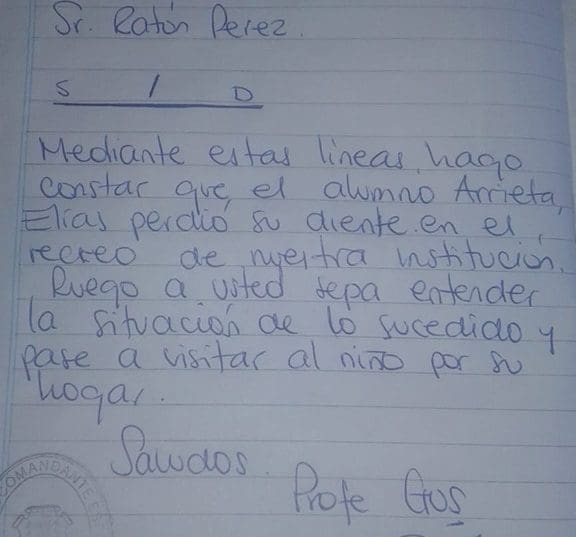 Sr. Ratón Perez.
S / D
Mediante estas lineas, hago
constar que, el alumno Arrieta,
Elías perdió su diente en el,
recreo de nuestra institución.
Ruego a usted sepa entender
la situación de lo sucedido y
pase a visitar al niño por su
hogar.
Saludos.
Profe Gus
COMANDANTE ES